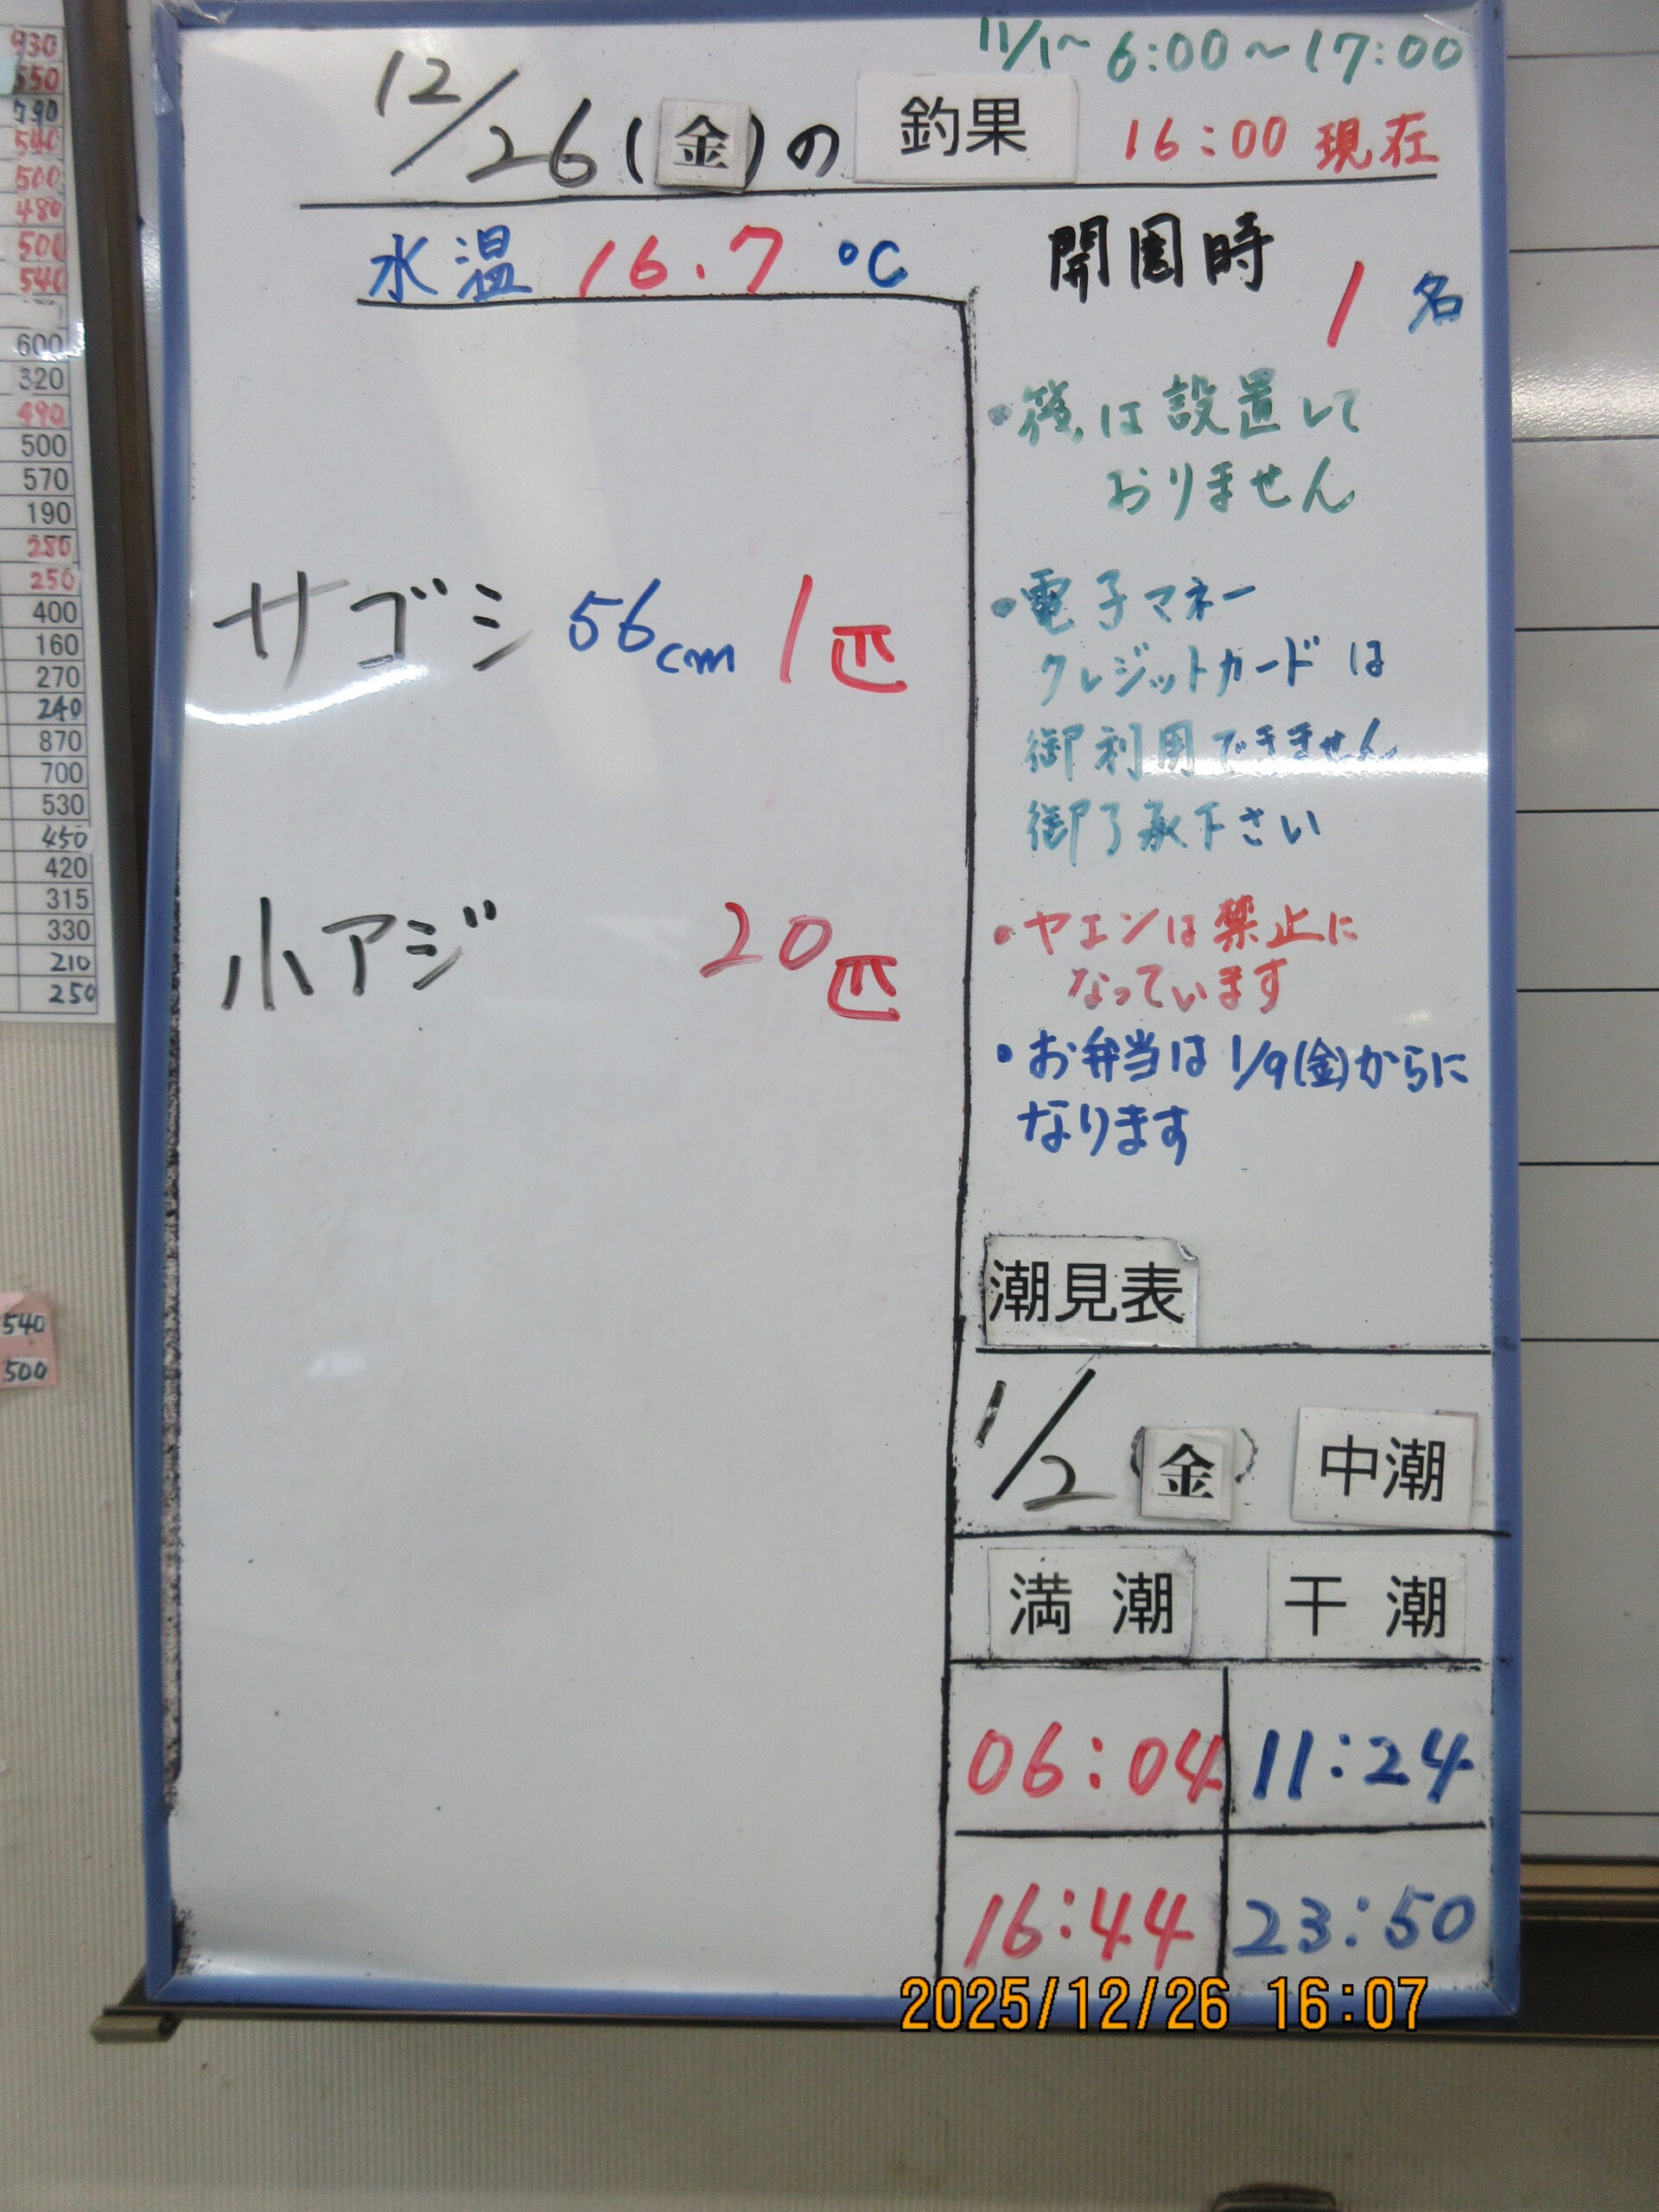 11/1~ 6:00~17:00
12/26(金)の 釣果 16:00 現在
水温 16.7 ℃
開園時 1 名
サゴシ 56cm 1匹
小アジ 20匹
・筏は設置して
おりません
・電子マネー
クレジットカードは
御利用できません
御了承下さい
・ヤエンは禁止に
なっています
・お弁当は 1/9(金)からに
なります
潮見表
1/2 (金) 中潮
満潮 干潮
06:04 11:24
16:44 23:50
2025/12/26 16:07
930
550
790
540
500
480
500
540
600
320
490
500
570
190
280
250
400
160
270
240
870
700
530
450
420
315
330
210
250
540
500